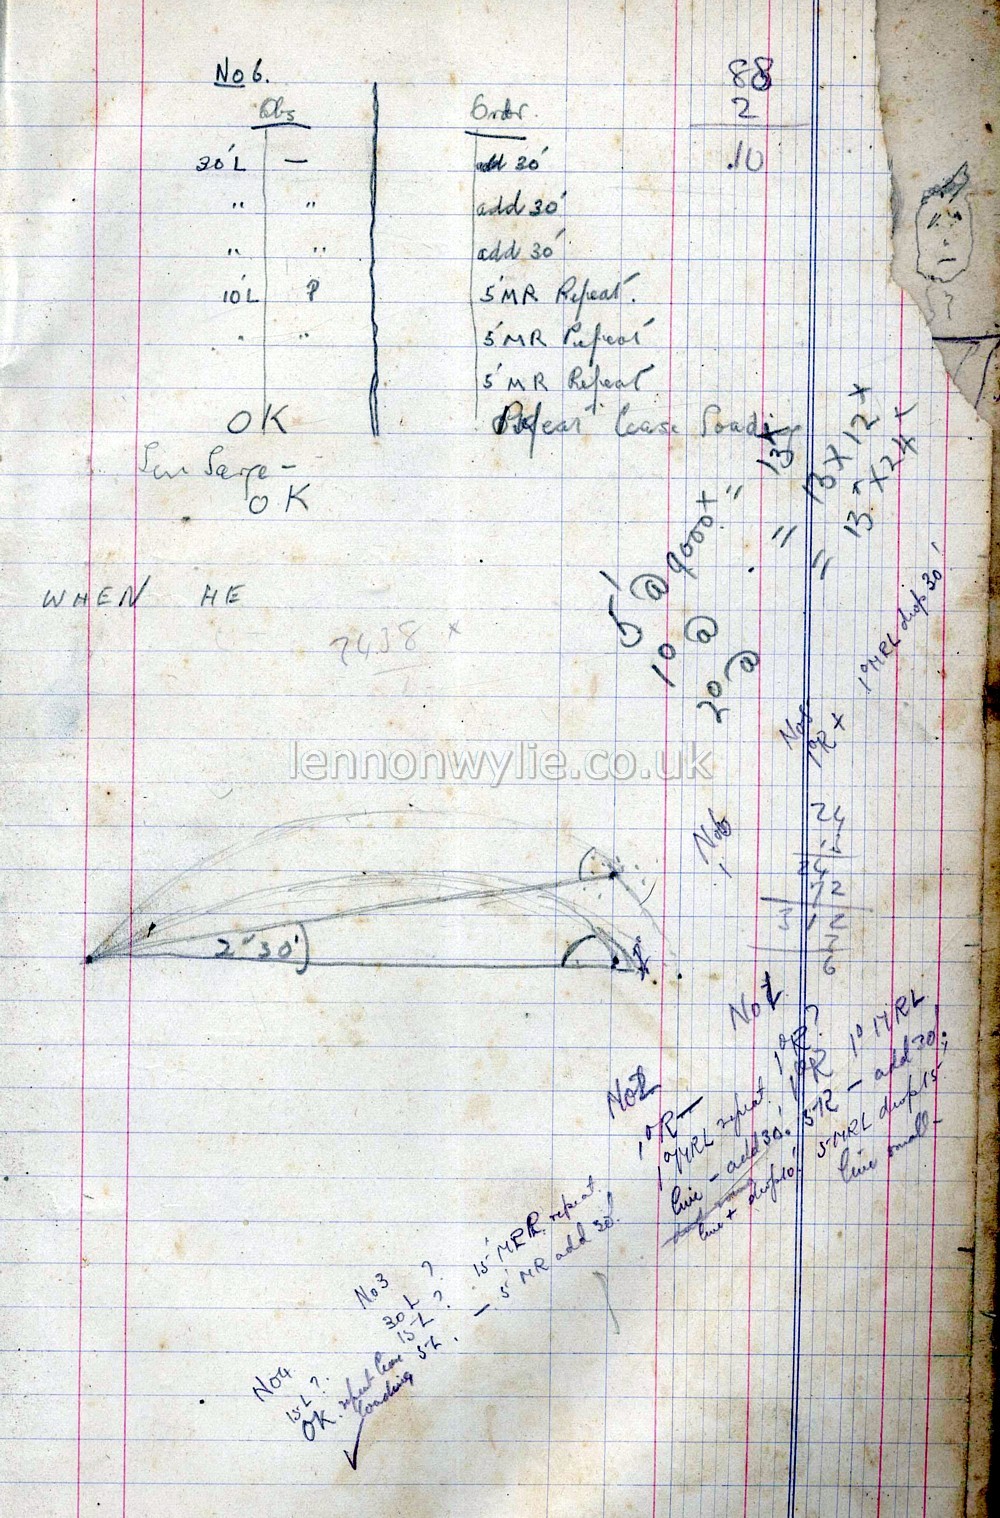 No 6.
Obs
Order.
30'L — add 30'
" " add 30'
" " add 30'
10'L ? 5'MR Repeat.
" 5'MR Repeat
5'MR Repeat
OK Repeat Cease Loading
OK
88
2
.10
WHEN HE
7438 x
5' @ 9000x = 13x
10 @ " = 13 x 12x
20 @ = 13 x 24x
1°MRL drop 30'
1°R x
No 6
24
72
312
6
lennonwylie.co.uk
2° 30'
No 1
1°R ? 1°MRL
1°R — add 30'.
5'R
5MRL drop 15'
line small —
No 2
1°R —
1°MRL repeat.
line — add 30'.
line + drop 10'.
No 3
30 L ? 15'MRR repeat.
15 L ? — 5'MR add 30'.
5 L.
No 4
15 L ?.
OK. repeat Cease
loading